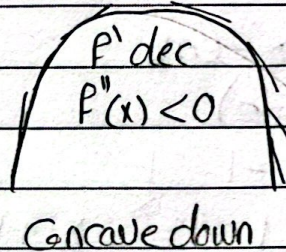 f' dec
f"(x) < 0
Concave down